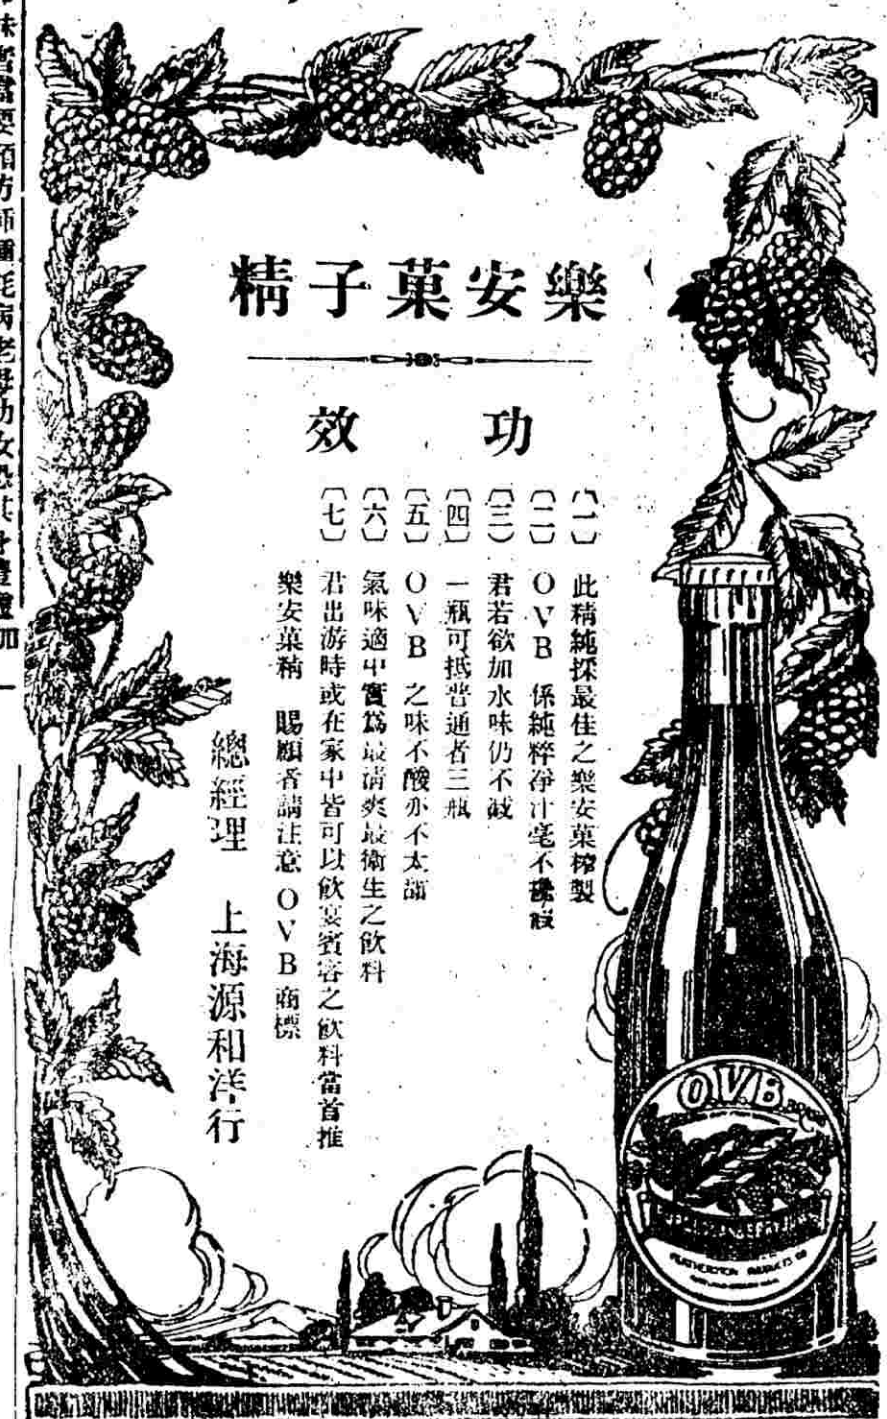 樂安菓子精
功效
〔一〕 此精純採最佳之樂安菓榨製
〔二〕 OVB 係純粹淨汁毫不攙假
〔三〕 君若欲加水味仍不減
〔四〕 一瓶可抵普通者三瓶
〔五〕 OVB 之味不酸亦不太甜
〔六〕 氣味適中實爲最清爽最衛生之飲料
〔七〕 君出游時或在家中皆可以飲宴賓客之飲料當首推
樂安菓精 賜顧者請注意OVB商標
總經理 上海源和洋行
O.V.B.